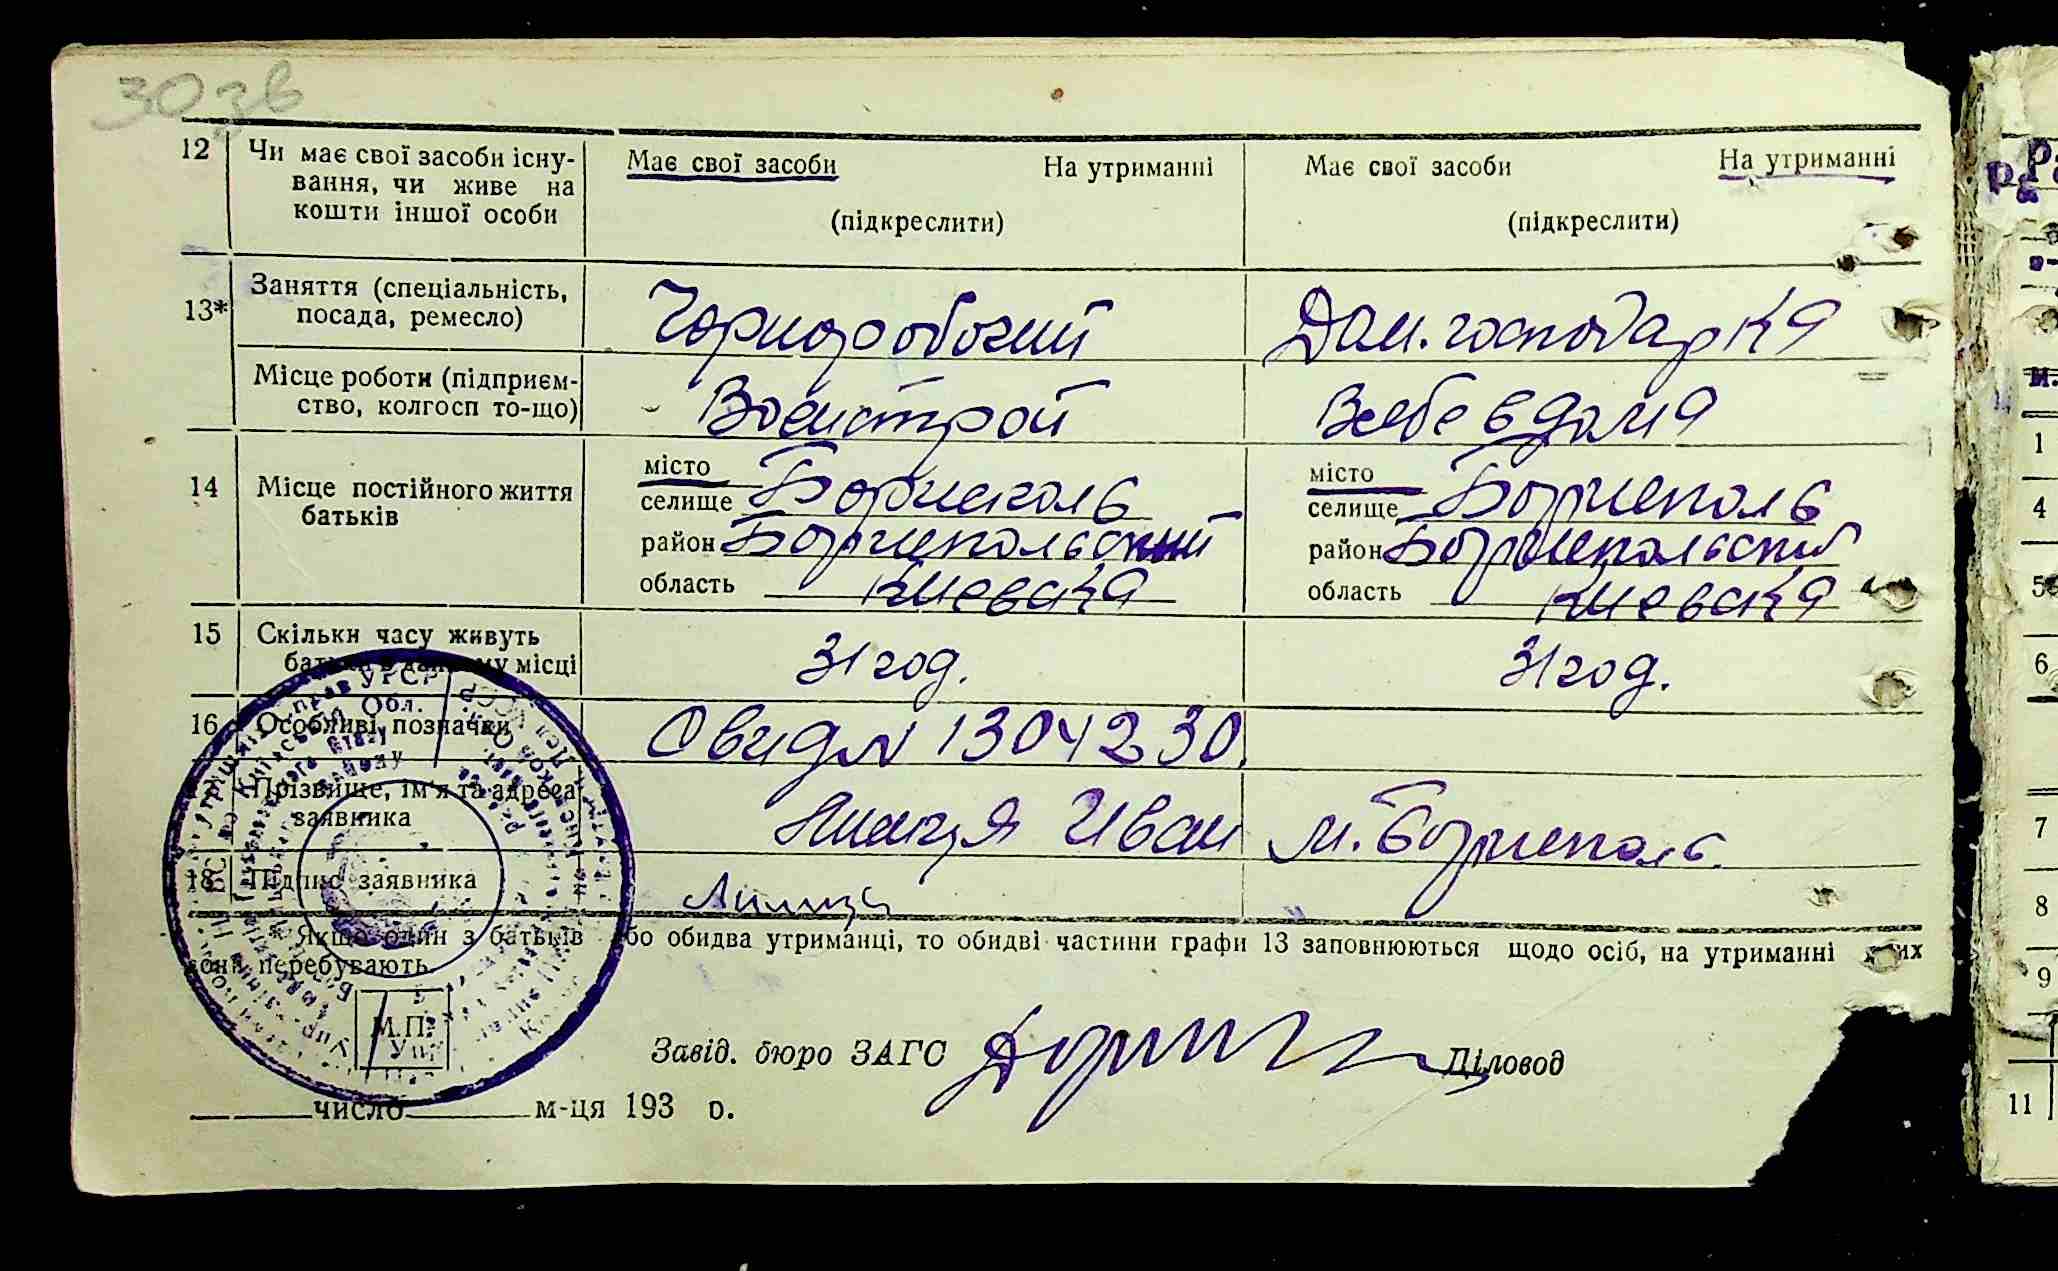 30зв
12 Чи має свої засоби існу- Має свої засоби На утриманні Має свої засоби На утриманні
вання, чи живе на
кошти іншої особи (підкреслити) (підкреслити)
13* Заняття (спеціальність, Чорноробочий Дом. господарка
посада, ремесло)
Місце роботи (підприєм- Военстрой В себе вдома
ство, колгосп то-що)
14 Місце постійного життя місто місто
батьків селище Бориспол�ь селище Бориспол�ь
район Бориспольский район Бориспольский
область Киевска область Киевска
15 Скільки часу живуть 31 год. 31 год.
батьки в даному місці
16 Особливі позначки Свид № 1304230.
17 Прізвище, ім'я та адреса Иван м. Борисполь.
заявника
18 Підпис заявника
* Якщо один з батьків або обидва утриманці, то обидві частини графи 13 заповнюються щодо осіб, на утриманні яких
вони перебувають.
М.П.
Завід. бюро ЗАГС Діловод
число м-ця 193 р.
1
4
5
6
7
8
9
11